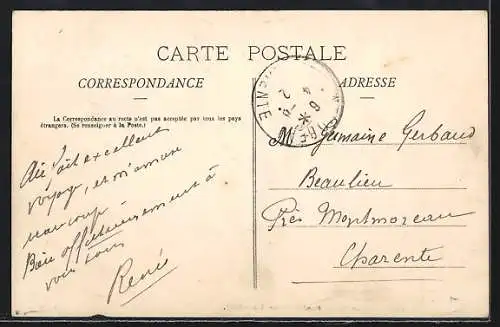 CARTE POSTALE
CORRESPONDANCE
La Correspondance au recto n'est pas acceptée par tous les pays
étrangers. (Se renseigner à la Poste.)
Ai fait excellent
voyage, et m'amuse
beaucoup.
Bien affectueusement à
vous tous
René
ADRESSE
Germaine Gerbaud
Beaulieu
Près Montmoreau
Charente